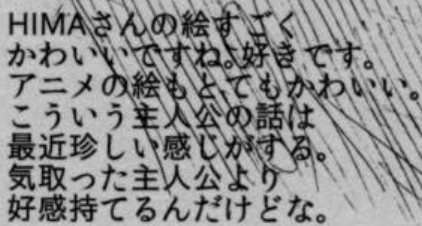 HIMAさんの絵すごく
かわいいですね。好きです。
アニメの絵もとてもかわいい。
こういう主人公の話は
最近珍しい感じがする。
気取った主人公より
好感持てるんだけどな。